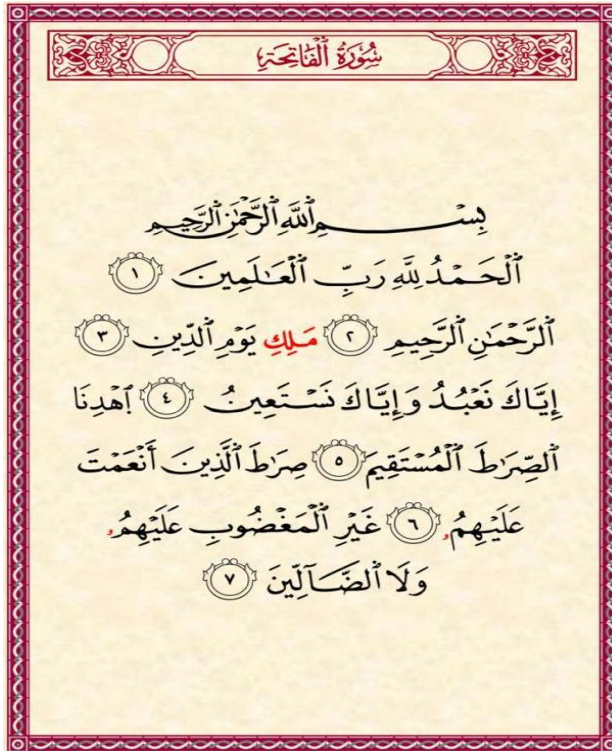 سُورَةُ ٱلْفَاتِحَةِ
بِسْمِ ٱللَّهِ ٱلرَّحْمَٰنِ ٱلرَّحِيمِ
ٱلْحَمْدُ لِلَّهِ رَبِّ ٱلْعَٰلَمِينَ ١
ٱلرَّحْمَٰنِ ٱلرَّحِيمِ ٢ مَلِكِ يَوْمِ ٱلدِّينِ ٣
إِيَّاكَ نَعْبُدُ وَإِيَّاكَ نَسْتَعِينُ ٤ ٱهْدِنَا
ٱلصِّرَٰطَ ٱلْمُسْتَقِيمَ ٥ صِرَٰطَ ٱلَّذِينَ أَنْعَمْتَ
عَلَيْهِمُۥ ٦ غَيْرِ ٱلْمَغْضُوبِ عَلَيْهِمُۥ
وَلَا ٱلضَّآلِّينَ ٧